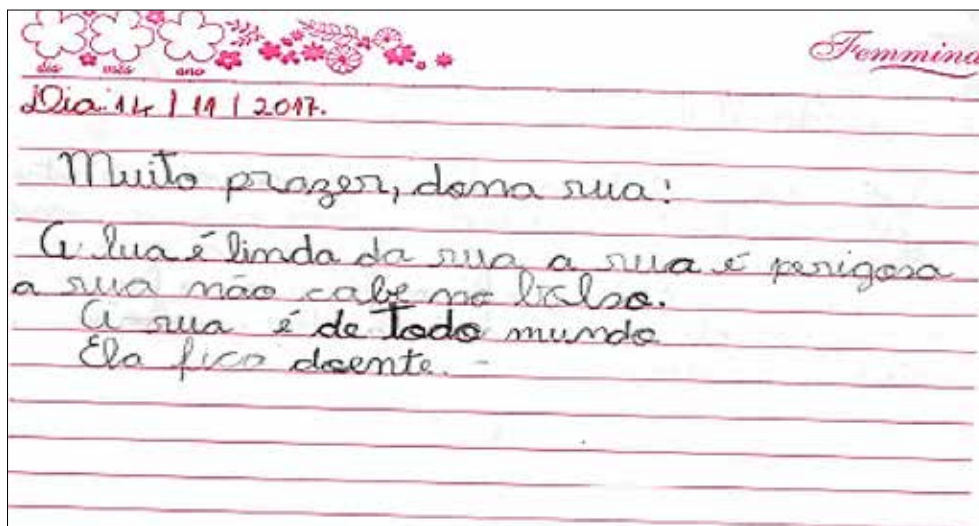 dia mês ano
Femmina
Dia: 14 / 11 / 2017.
Muito prazer, dona rua!
A lua é linda da rua a rua é perigosa
a rua não cabe no bolso.
A rua é de Todo mundo
Ela fico doente.